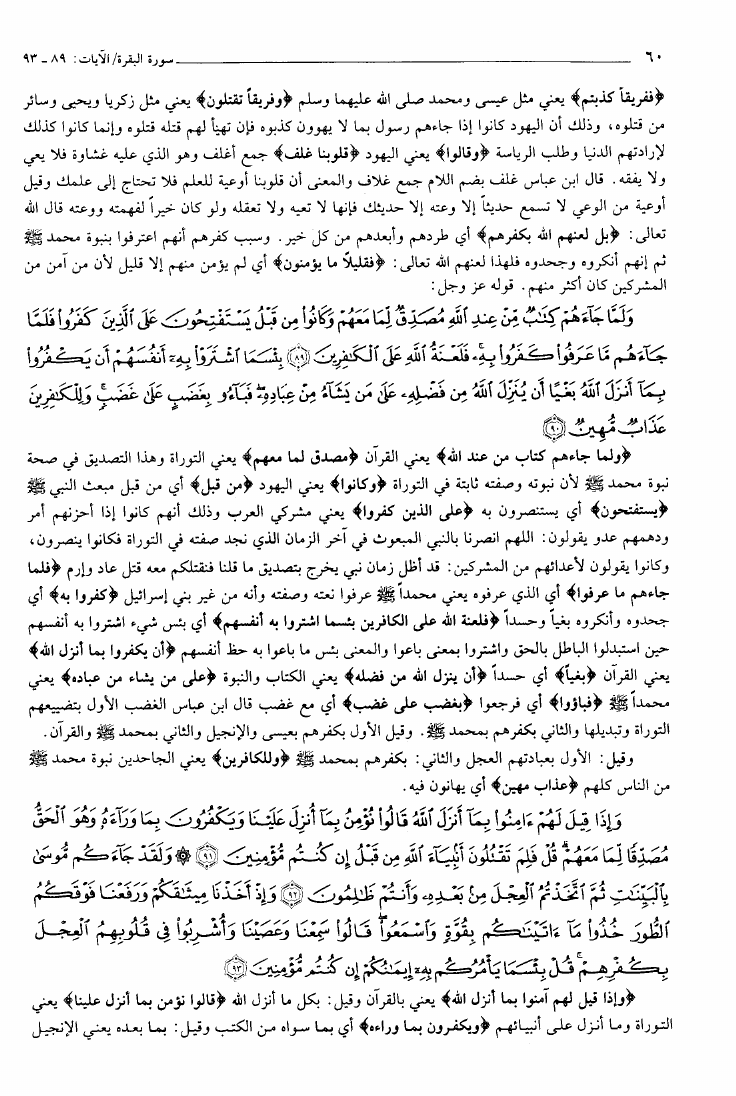 ٦٠ سورة البقرة/ الآيات: ٨٩ ـ ٩٣
﴿ففريقاً كذبتم﴾ يعني مثل عيسى ومحمد صلى الله عليهما وسلم ﴿وفريقاً تقتلون﴾ يعني مثل زكريا ويحيى وسائر
من قتلوه، وذلك أن اليهود كانوا إذا جاءهم رسول بما لا يهوون كذبوه فإن تهيأ لهم قتله قتلوه وإنما كانوا كذلك
لإرادتهم الدنيا وطلب الرياسة ﴿وقالوا﴾ يعني اليهود ﴿قلوبنا غلف﴾ جمع أغلف وهو الذي عليه غشاوة فلا يعي
ولا يفقه. قال ابن عباس غلف بضم اللام جمع غلاف والمعنى أن قلوبنا أوعية للعلم فلا تحتاج إلى علمك وقيل
أوعية من الوعي لا تسمع حديثاً إلا وعته إلا حديثك فإنها لا تعيه ولا تعقله ولو كان خيراً لفهمته ووعته قال الله
تعالى: ﴿بل لعنهم الله بكفرهم﴾ أي طردهم وأبعدهم من كل خير. وسبب كفرهم أنهم اعترفوا بنبوة محمد ﷺ
ثم إنهم أنكروه وجحدوه فلهذا لعنهم الله تعالى: ﴿فقليلاً ما يؤمنون﴾ أي لم يؤمن منهم إلا قليل لأن من آمن من
المشركين كان أكثر منهم. قوله عز وجل:
وَلَمَّا جَآءَهُمْ كِتَٰبٌ مِّنْ عِندِ ٱللَّهِ مُصَدِّقٌ لِّمَا مَعَهُمْ وَكَانُوا۟ مِن قَبْلُ يَسْتَفْتِحُونَ عَلَى ٱلَّذِينَ كَفَرُوا۟ فَلَمَّا
جَآءَهُم مَّا عَرَفُوا۟ كَفَرُوا۟ بِهِۦ فَلَعْنَةُ ٱللَّهِ عَلَى ٱلْكَٰفِرِينَ ﴿٨٩﴾ بِئْسَمَا ٱشْتَرَوْا۟ بِهِۦٓ أَنفُسَهُمْ أَن يَكْفُرُوا۟
بِمَآ أَنزَلَ ٱللَّهُ بَغْيًا أَن يُنَزِّلَ ٱللَّهُ مِن فَضْلِهِۦ عَلَىٰ مَن يَشَآءُ مِنْ عِبَادِهِۦ فَبَآءُو بِغَضَبٍ عَلَىٰ غَضَبٍ وَلِلْكَٰفِرِينَ
عَذَابٌ مُّهِينٌ ﴿٩٠﴾
﴿ولما جاءهم كتاب من عند الله﴾ يعني القرآن ﴿مصدق لما معهم﴾ يعني التوراة وهذا التصديق في صحة
نبوة محمد ﷺ لأن نبوته وصفته ثابتة في التوراة ﴿وكانوا﴾ يعني اليهود ﴿من قبل﴾ أي من قبل مبعث النبي ﷺ
﴿يستفتحون﴾ أي يستنصرون به ﴿على الذين كفروا﴾ يعني مشركي العرب وذلك أنهم كانوا إذا أحزنهم أمر
ودهمهم عدو يقولون: اللهم انصرنا بالنبي المبعوث في آخر الزمان الذي نجد صفته في التوراة فكانوا ينصرون،
وكانوا يقولون لأعدائهم من المشركين: قد أظل زمان نبي يخرج بتصديق ما قلنا فنقتلكم معه قتل عاد وإرم ﴿فلما
جاءهم ما عرفوا﴾ أي الذي عرفوه يعني محمداً ﷺ عرفوا نعته وصفته وأنه من غير بني إسرائيل ﴿كفروا به﴾ أي
جحدوه وأنكروه بغياً وحسداً ﴿فلعنة الله على الكافرين بئسما اشتروا به أنفسهم﴾ أي بئس شيء اشتروا به أنفسهم
حين استبدلوا الباطل بالحق واشتروا بمعنى باعوا والمعنى بئس ما باعوا به حظ أنفسهم ﴿أن يكفروا بما أنزل الله﴾
يعني القرآن ﴿بغياً﴾ أي حسداً ﴿أن ينزل الله من فضله﴾ يعني الكتاب والنبوة ﴿على من يشاء من عباده﴾ يعني
محمداً ﷺ ﴿فباؤوا﴾ أي فرجعوا ﴿بغضب على غضب﴾ أي مع غضب قال ابن عباس الغضب الأول بتضييعهم
التوراة وتبديلها والثاني بكفرهم بمحمد ﷺ. وقيل الأول بكفرهم بعيسى والإنجيل والثاني بمحمد ﷺ والقرآن.
وقيل: الأول بعبادتهم العجل والثاني: بكفرهم بمحمد ﷺ ﴿وللكافرين﴾ يعني الجاحدين نبوة محمد ﷺ
من الناس كلهم ﴿عذاب مهين﴾ أي يهانون فيه.
وَإِذَا قِيلَ لَهُمْ ءَامِنُوا۟ بِمَآ أَنزَلَ ٱللَّهُ قَالُوا۟ نُؤْمِنُ بِمَآ أُنزِلَ عَلَيْنَا وَيَكْفُرُونَ بِمَا وَرَآءَهُۥ وَهُوَ ٱلْحَقُّ
مُصَدِّقًا لِّمَا مَعَهُمْ قُلْ فَلِمَ تَقْتُلُونَ أَنۢبِيَآءَ ٱللَّهِ مِن قَبْلُ إِن كُنتُم مُّؤْمِنِينَ ﴿٩١﴾ ۞ وَلَقَدْ جَآءَكُم مُّوسَىٰ
بِٱلْبَيِّنَٰتِ ثُمَّ ٱتَّخَذْتُمُ ٱلْعِجْلَ مِنۢ بَعْدِهِۦ وَأَنتُمْ ظَٰلِمُونَ ﴿٩٢﴾ وَإِذْ أَخَذْنَا مِيثَٰقَكُمْ وَرَفَعْنَا فَوْقَكُمُ
ٱلطُّورَ خُذُوا۟ مَآ ءَاتَيْنَٰكُم بِقُوَّةٍ وَٱسْمَعُوا۟ قَالُوا۟ سَمِعْنَا وَعَصَيْنَا وَأُشْرِبُوا۟ فِى قُلُوبِهِمُ ٱلْعِجْلَ
بِكُفْرِهِمْ قُلْ بِئْسَمَا يَأْمُرُكُم بِهِۦٓ إِيمَٰنُكُمْ إِن كُنتُم مُّؤْمِنِينَ ﴿٩٣﴾
﴿وإذا قيل لهم آمنوا بما أنزل الله﴾ يعني بالقرآن وقيل: بكل ما أنزل الله ﴿قالوا نؤمن بما أنزل علينا﴾ يعني
التوراة وما أنزل على أنبيائهم ﴿ويكفرون بما وراءه﴾ أي بما سواه من الكتب وقيل: بما بعده يعني الإنجيل